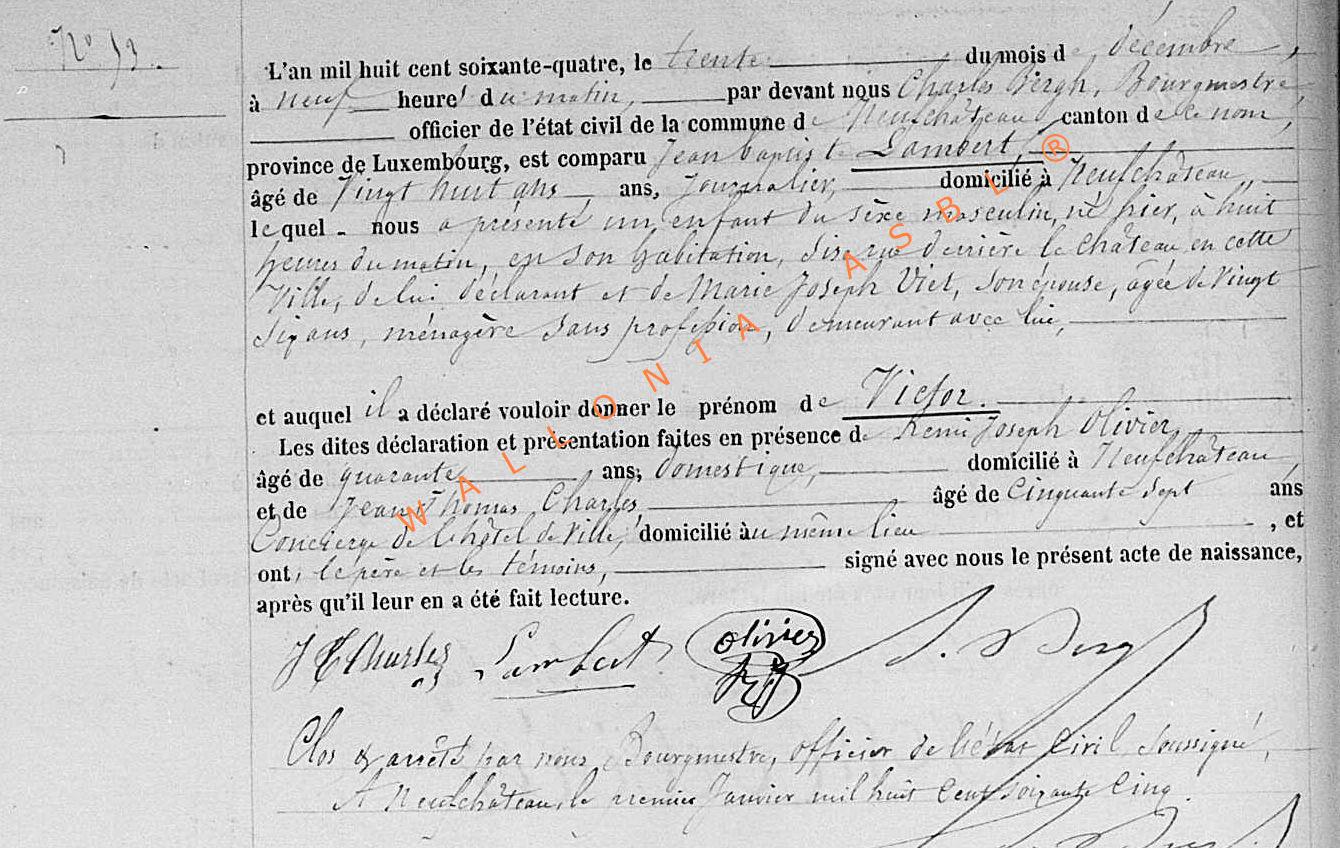 N° 53.
L'an mil huit cent soixante-quatre, le trente du mois de décembre,
à neuf heures du matin, par devant nous Charles Bergh, Bourgmestre
officier de l'état civil de la commune de Neufchâteau, canton de ce nom,
province de Luxembourg, est comparu Jean baptiste Lambert,
âgé de Vingt huit ans, ans, Journalier, domicilié à Neufchâteau,
lequel nous a présenté un enfant du sèxe masculin, né hier, à huit
heures du matin, en son habitation, sise rue derrière le château en cette
Ville, de lui déclarant et de Marie Joseph Viet, son épouse, agée de Vingt
six ans, ménagère sans profession, demeurant avec lui,
et auquel il a déclaré vouloir donner le prénom de Victor.
Les dites déclaration et présentation faites en présence de Remi Joseph Olivier,
âgé de quarante ans, domestique, domicilié à Neufchâteau
et de Jean Thomas Charles, âgé de Cinquante sept ans
Concierge de l'hôtel de Ville, domicilié au même lieu, et
ont, le père et les témoins, signé avec nous le présent acte de naissance,
après qu'il leur en a été fait lecture.
J T Charles Lambert Olivier RJ Bergh
Clos & arrêté par nous Bourgmestre, officier de l'état Civil soussigné,
A Neufchâteau, le premier Janvier mil huit Cent soixante Cinq.
WALLONIA ASBL ®